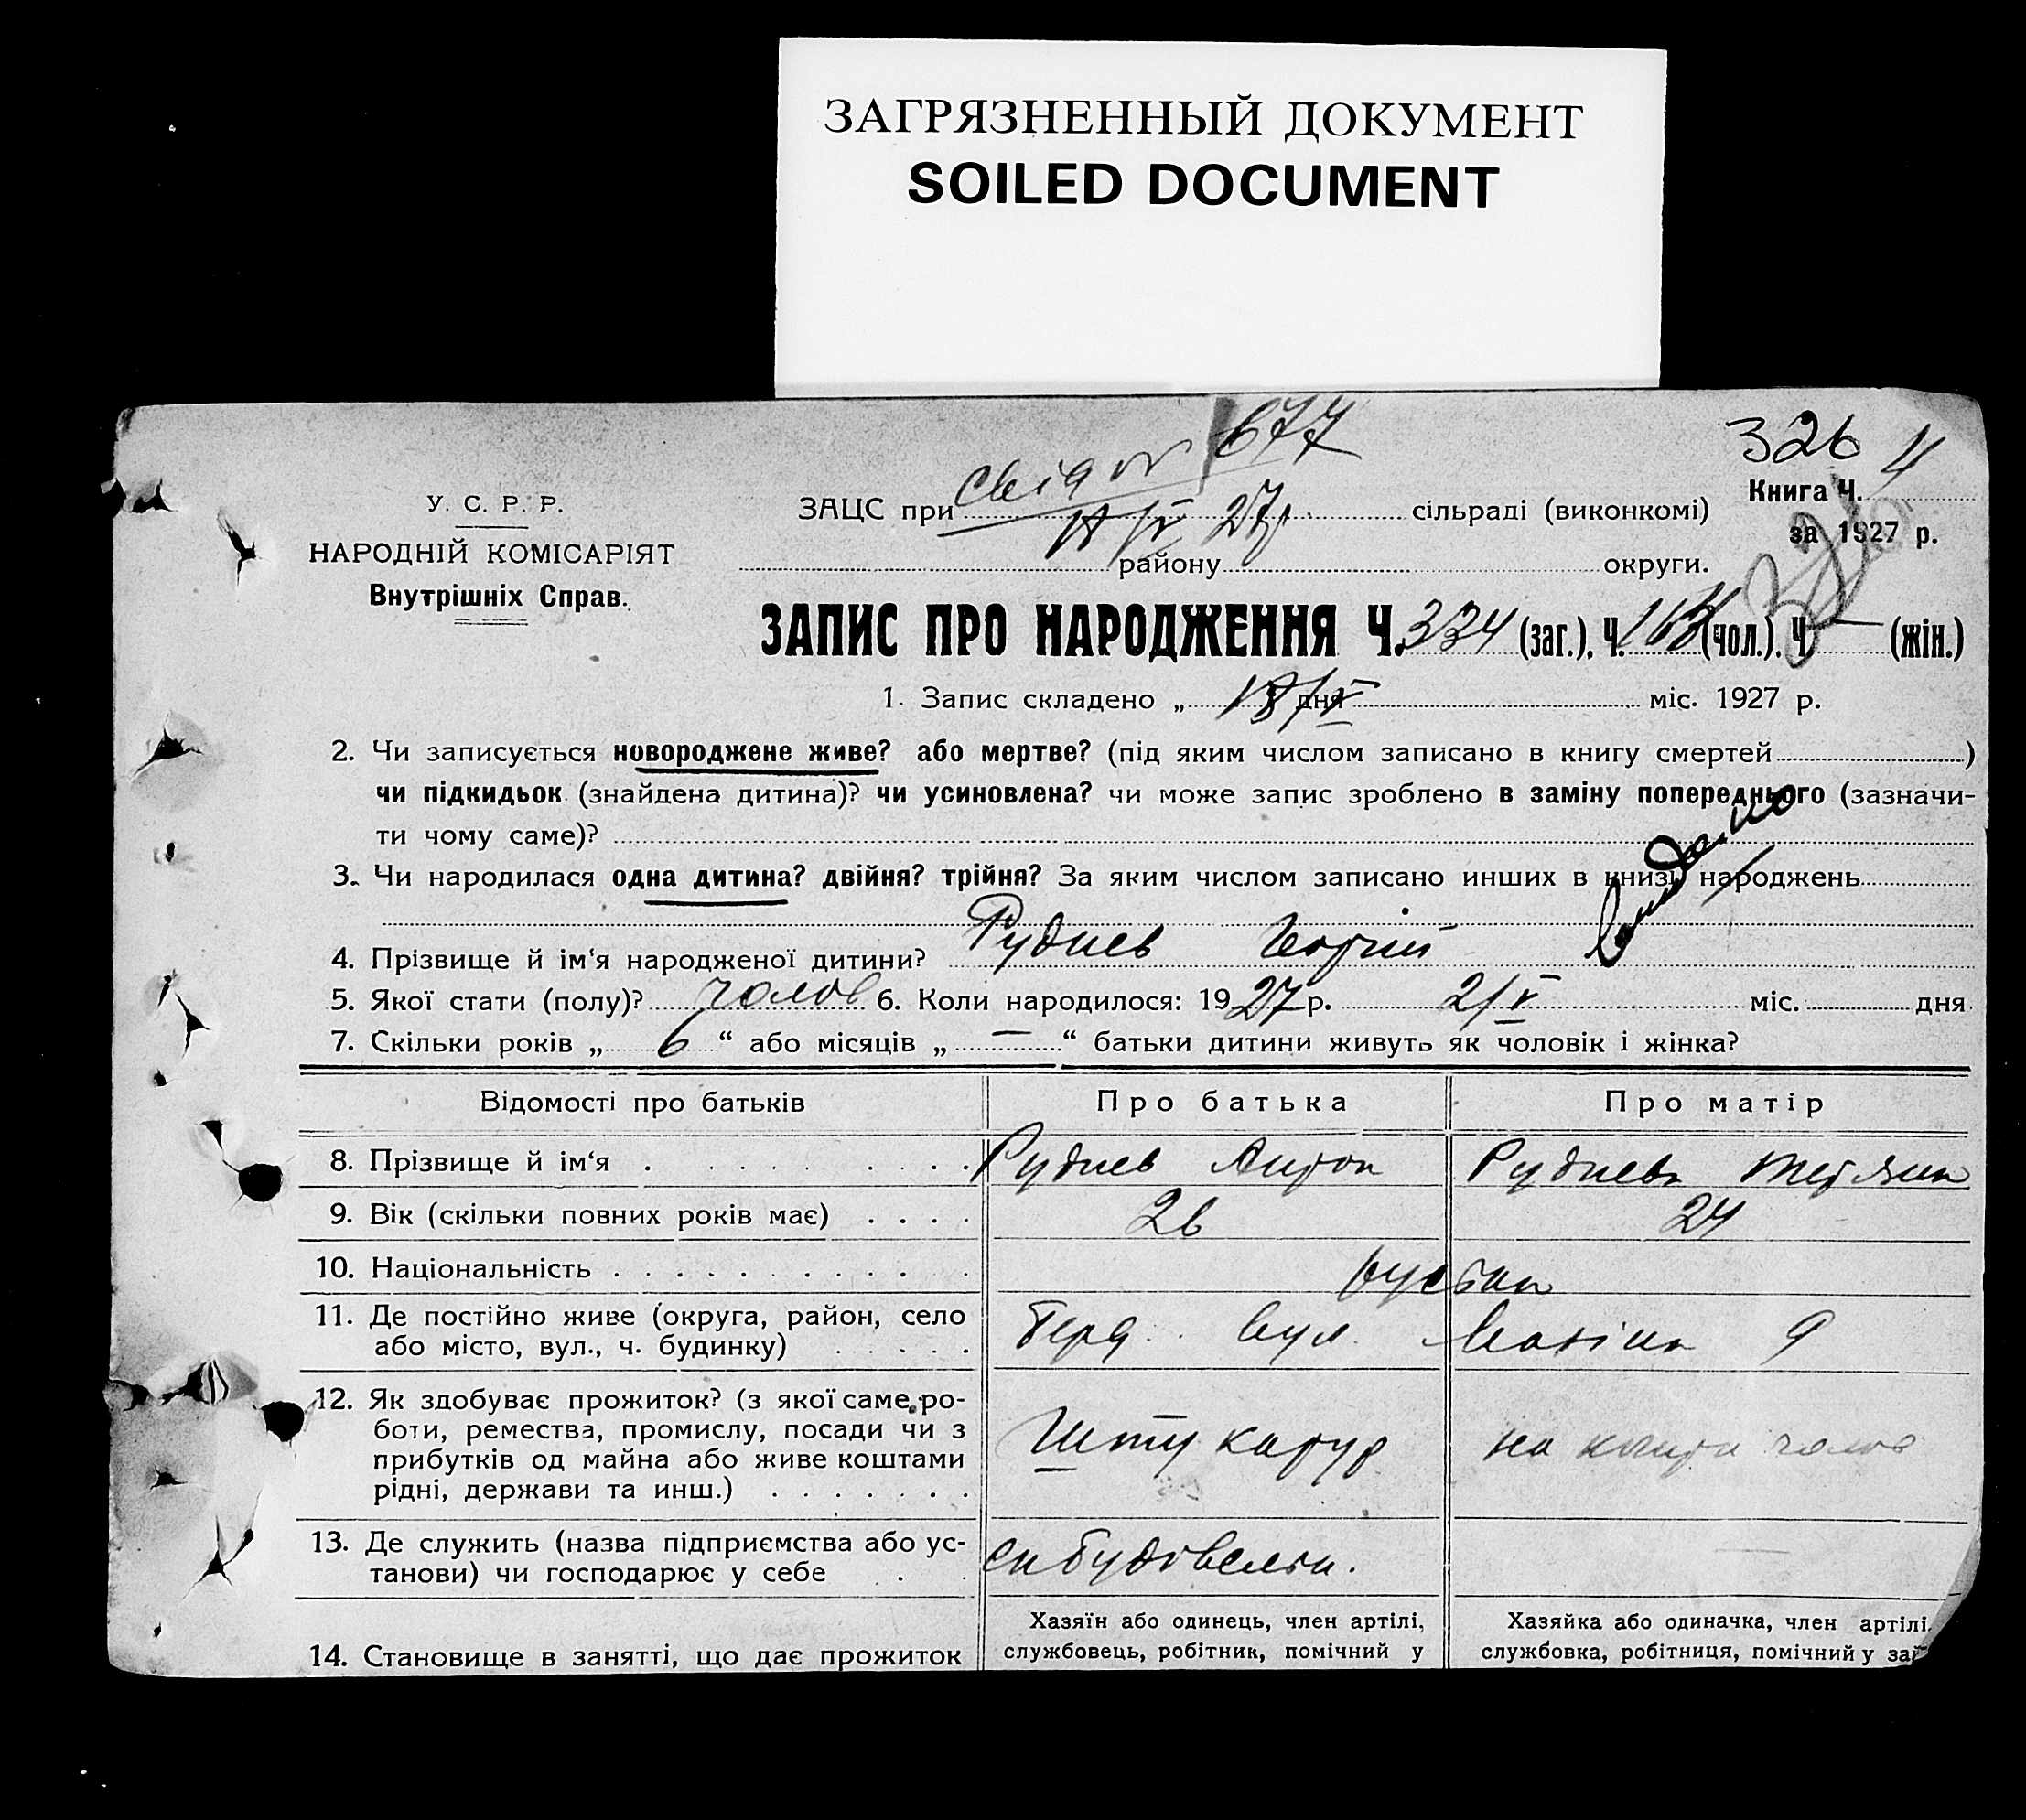 ЗАГРЯЗНЕННЫЙ ДОКУМЕНТ
SOILED DOCUMENT
677
326 4
У. С. Р. Р.
НАРОДНІЙ КОМІСАРІЯТ
Внутрішніх Справ.
ЗАЦС при сільраді (виконкомі)
Книга Ч.
за 1927 р.
району округи.
ЗАПИС ПРО НАРОДЖЕННЯ Ч. 334 (заг.). Ч. (чол.). Ч. — (жін.)
1. Запис складено „ 18/V дня міс. 1927 р.
2. Чи записується новороджене живе? або мертве? (під яким числом записано в книгу смертей )
чи підкидьок (знайдена дитина)? чи усиновлена? чи може запис зроблено в заміну попереднього (зазначи-
ти чому саме)?
3. Чи народилася одна дитина? двійня? трійня? За яким числом записано инших в книзі народжень
4. Прізвище й ім‘я народженої дитини? Руднев Георгий
5. Якої стати (полу)? чолов 6. Коли народилося: 1927 р. 2/V міс. дня
7. Скільки років „ 6 “ або місяців „ — “ батьки дитини живуть як чоловік і жінка?
Відомості про батьків Про батька Про матір
8. Прізвище й ім‘я Руднев Антон Руднева
9. Вік (скільки повних років має) 26 24
10. Національність
11. Де постійно живе (округа, район, село
або місто, вул., ч. будинку) вул. 9
12. Як здобуває прожиток? (з якої саме ро-
боти, ремества, промислу, посади чи з
прибутків од майна або живе коштами
рідні, держави та инш.) Штукатур на кошти чолов
13. Де служить (назва підприємства або ус-
танови) чи господарює у себе
14. Становище в занятті, що дає прожиток
Хазяїн або одинець, член артілі,
службовець, робітник, помічний у
Хазяйка або одиначка, член артілі,
службовка, робітниця, помічний у